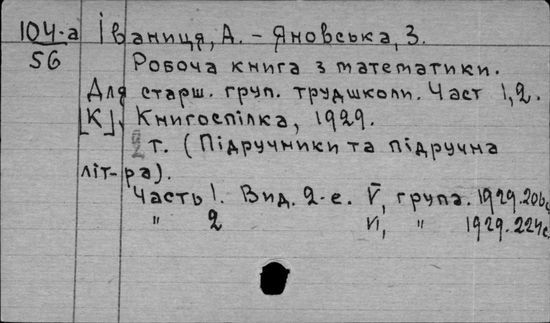 104-а Іваниця, А. - Яновська, З.
56 Робоча книга з математики.
Для старш. груп. трудшколи. Част 1, 2.
[К], Книгоспілка, 1929.
2 т. (Підручники та підручна
літ-ра).
Часть 1. Вид. 2-е. V, група. 1929. 206с
" 2 VI, " 1929. 224с